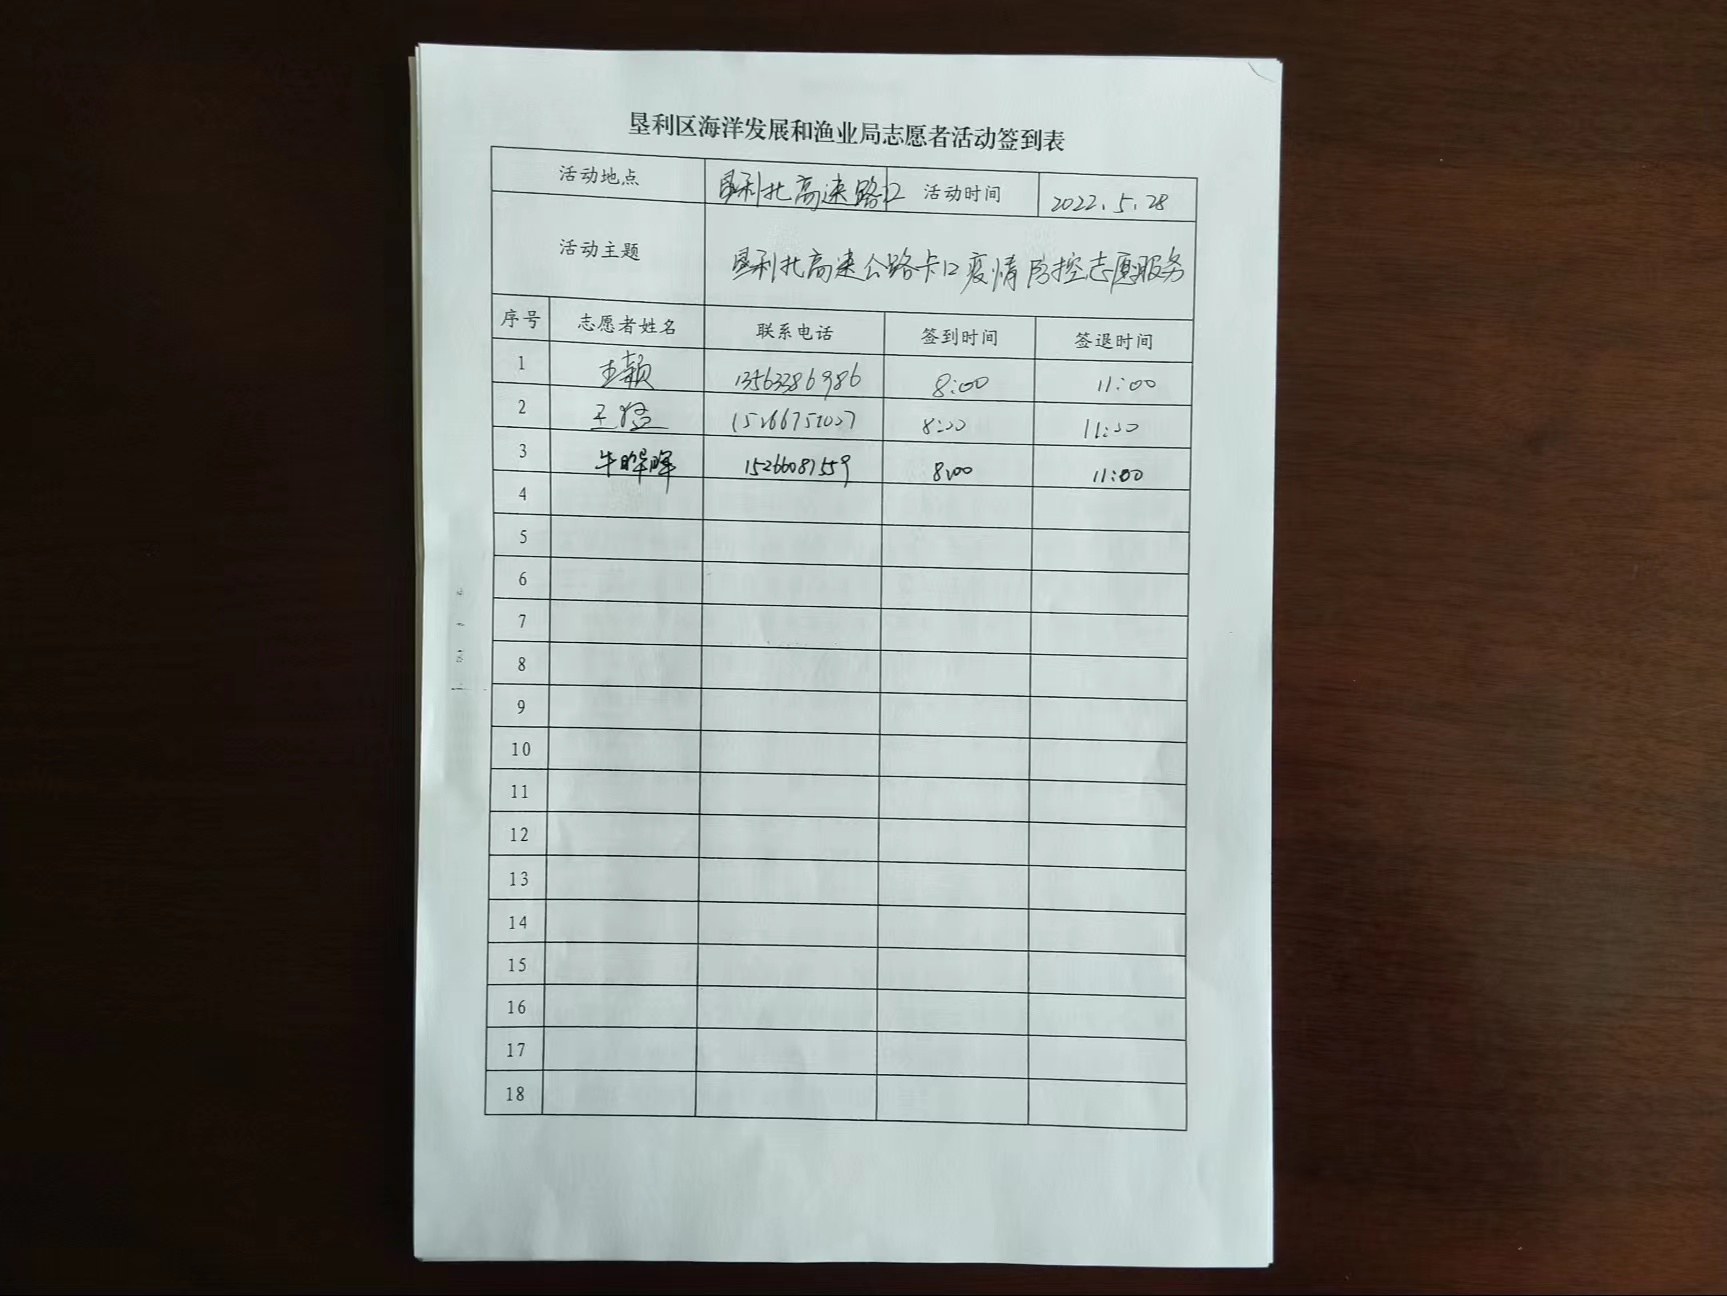 垦利区海洋发展和渔业局志愿者活动签到表
活动地点 垦利北高速路口 活动时间 2022.5.28
活动主题 垦利北高速公路卡口疫情防控志愿服务
序号 志愿者姓名 联系电话 签到时间 签退时间
1 王颖 13563386986 8:00 11:00
2 王 15266751027 8:00 11:00
3 牛晔晖 15266081559 8:00 11:00
4
5
6
7
8
9
10
11
12
13
14
15
16
17
18